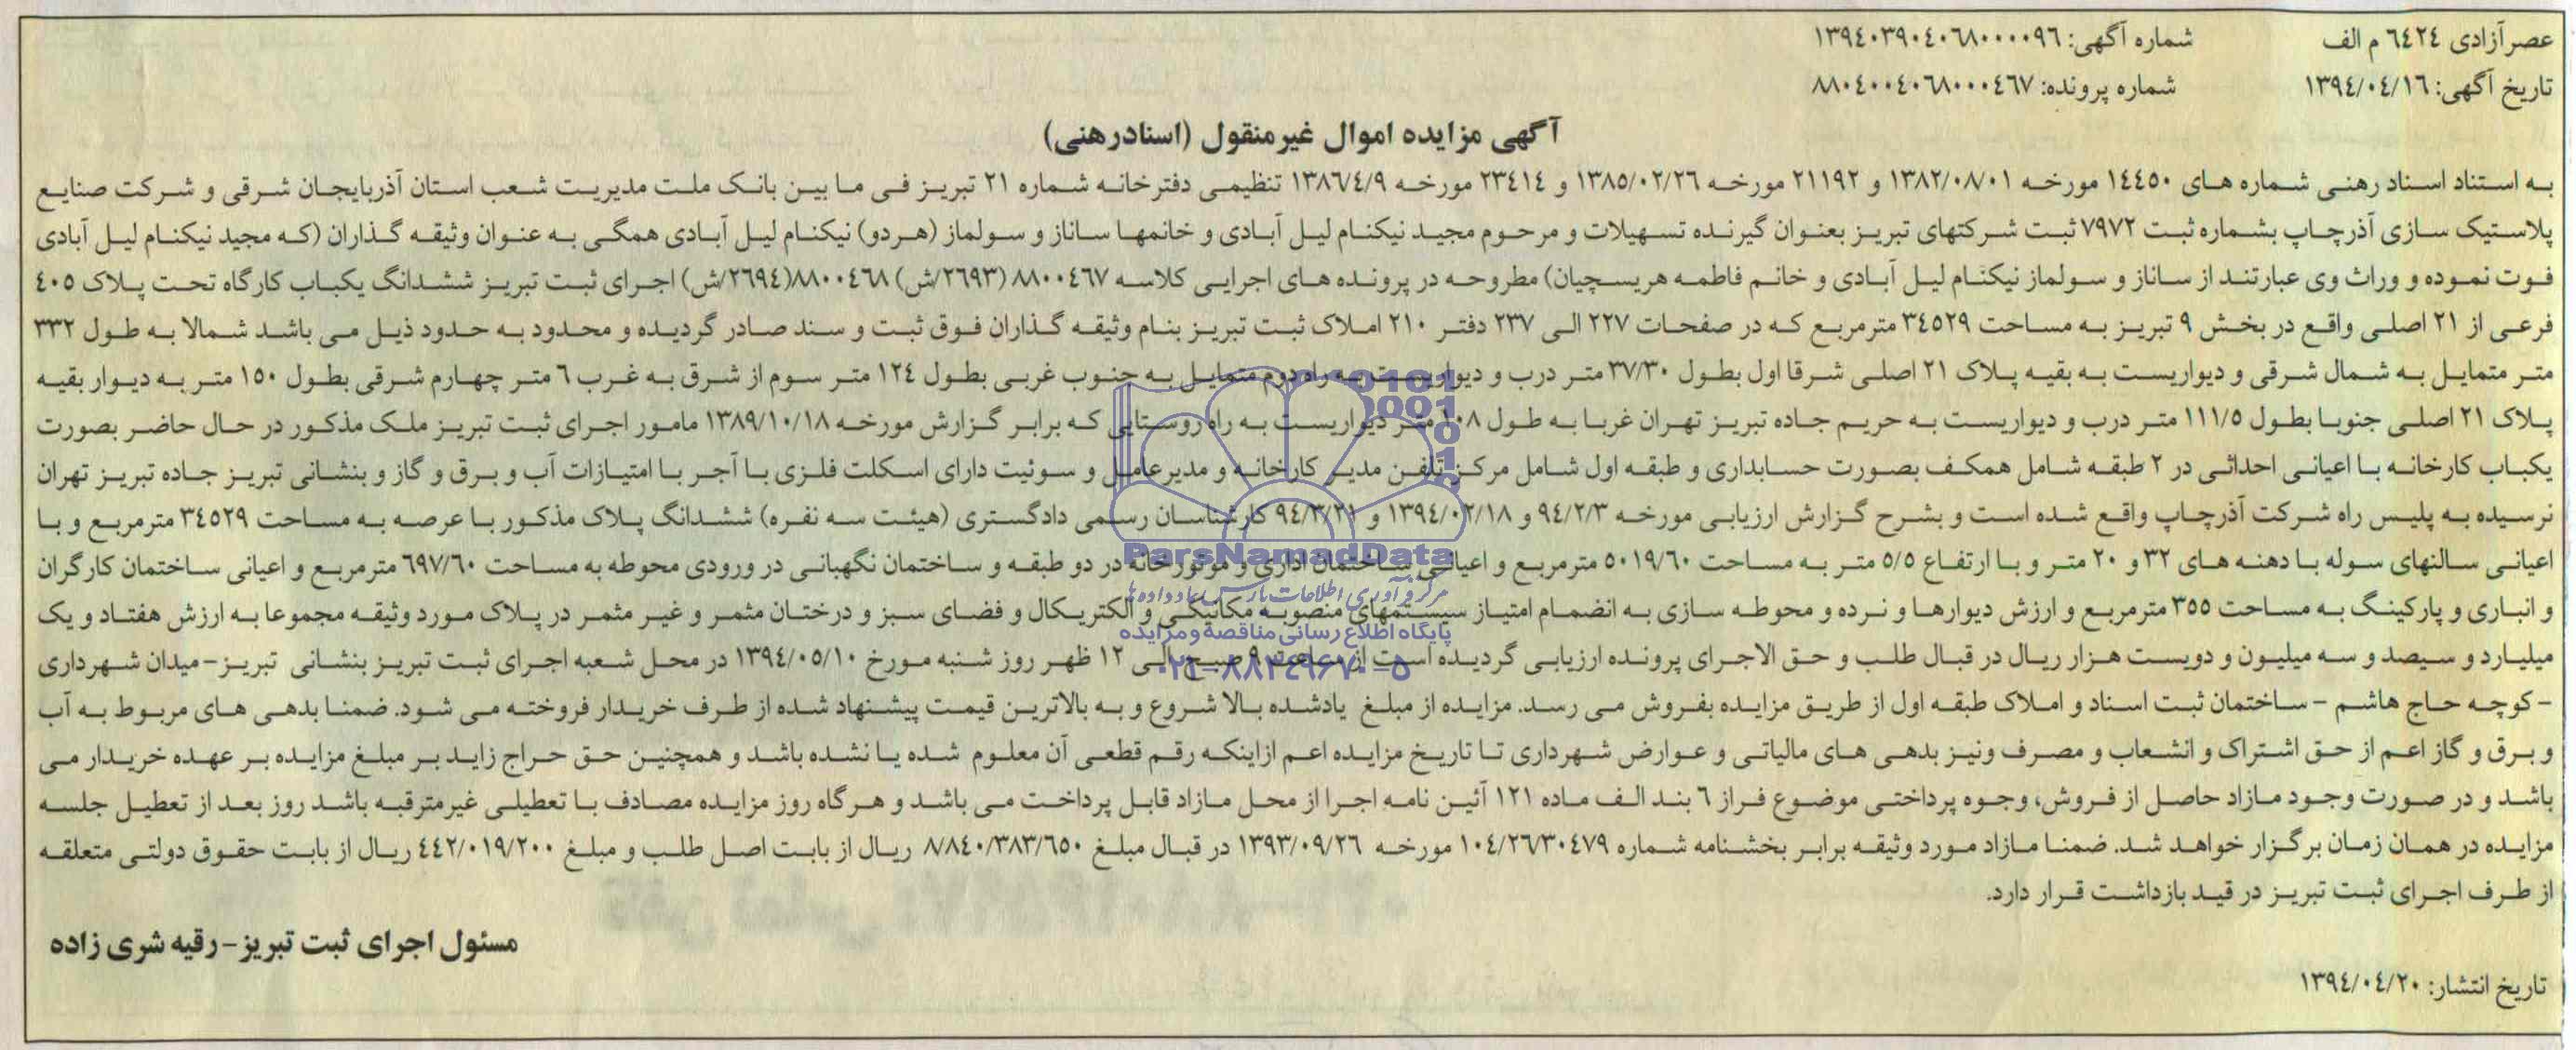 عصرآزادی ٦٤٢٤ م الف
شماره آگهی: ١٣٩٤٠٣٩٠٤٠٦٨٠٠٠٠٩٦
تاریخ آگهی: ١٣٩٤/٠٤/١٦
شماره پرونده: ٨٨٠٤٠٠٤٠٦٨٠٠٠٤٦٧
آگهی مزایده اموال غیرمنقول (اسنادرهنی)
به استناد اسناد رهنی شماره های ١٤٤٥٠ مورخه ١٣٨٢/٠٨/٠١ و ٢١١٩٢ مورخه ١٣٨٥/٠٢/٢٦ و ٢٣٤١٤ مورخه ١٣٨٦/٤/٩ تنظیمی دفترخانه شماره ٢١ تبریز فی ما بین بانک ملت مدیریت شعب استان آذربایجان شرقی و شرکت صنایع
پلاستیک سازی آذرچاپ بشماره ثبت ٧٩٧٢ ثبت شرکتهای تبریز بعنوان گیرنده تسهیلات و مرحوم مجید نیکنام لیل آبادی و خانمها ساناز و سولماز (هردو) نیکنام لیل آبادی همگی به عنوان وثیقه گذاران (که مجید نیکنام لیل آبادی
فوت نموده و وراث وی عبارتند از ساناز و سولماز نیکنام لیل آبادی و خانم فاطمه هریسچیان) مطروحه در پرونده های اجرایی کلاسه ٨٨٠٠٤٦٧ (٢٦٩٣/ش) ٨٨٠٠٤٦٨(٢٦٩٤/ش) اجرای ثبت تبریز ششدانگ یکباب کارگاه تحت پلاک ٤٠٥
فرعی از ٢١ اصلی واقع در بخش ٩ تبریز به مساحت ٣٤٥٢٩ مترمربع که در صفحات ٢٢٧ الی ٢٣٧ دفتر ٢١٠ املاک ثبت تبریز بنام وثیقه گذاران فوق ثبت و سند صادر گردیده و محدود به حدود ذیل می باشد شمالا به طول ٣٣٢
متر متمایل به شمال شرقی و دیواریست به بقیه پلاک ٢١ اصلی شرقا اول بطول ٣٧/٣٠ متر درب و دیواریست به راه دوم متمایل به جنوب غربی بطول ١٢٤ متر سوم از شرق به غرب ٦ متر چهارم شرقی بطول ١٥٠ متر به دیوار بقیه
پلاک ٢١ اصلی جنوبا بطول ١١١/٥ متر درب و دیواریست به حریم جاده تبریز تهران غربا به طول ١٠٨ متر دیواریست به راه روستایی که برابر گزارش مورخه ١٣٨٩/١٠/١٨ مامور اجرای ثبت تبریز ملک مذکور در حال حاضر بصورت
یکباب کارخانه با اعیانی احداثی در ٢ طبقه شامل همکف بصورت حسابداری و طبقه اول شامل مرکز تلفن مدیر کارخانه و مدیرعامل و سوئیت دارای اسکلت فلزی با آجر با امتیازات آب و برق و گاز و بنشانی تبریز جاده تبریز تهران
نرسیده به پلیس راه شرکت آذرچاپ واقع شده است و بشرح گزارش ارزیابی مورخه ٩٤/٢/٣ و ١٣٩٤/٠٢/١٨ و ٩٤/٣/٢١ کارشناسان رسمی دادگستری (هیئت سه نفره) ششدانگ پلاک مذکور با عرصه به مساحت ٣٤٥٢٩ مترمربع و با
اعیانی سالنهای سوله با دهنه های ٣٢ و ٢٠ متر و با ارتفاع ٥/٥ متر به مساحت ٥٠١٩/٦٠ مترمربع و اعیانی ساختمان اداری و موتورخانه در دو طبقه و ساختمان نگهبانی در ورودی محوطه به مساحت ٦٩٧/٦٠ مترمربع و اعیانی ساختمان کارگران
و انباری و پارکینگ به مساحت ٣٥٥ مترمربع و ارزش دیوارها و نرده و محوطه سازی به انضمام امتیاز سیستمهای منصوبه مکانیکی و الکتریکال و فضای سبز و درختان مثمر و غیر مثمر در پلاک مورد وثیقه مجموعا به ارزش هفتاد و یک
میلیارد و سیصد و سه میلیون و دویست هزار ریال در قبال طلب و حق الاجرای پرونده ارزیابی گردیده است از ساعت ٩ صبح الی ١٢ ظهر روز شنبه مورخ ١٣٩٤/٠٥/١٠ در محل شعبه اجرای ثبت تبریز بنشانی تبریز-میدان شهرداری
- کوچه حاج هاشم - ساختمان ثبت اسناد و املاک طبقه اول از طریق مزایده بفروش می رسد. مزایده از مبلغ یادشده بالا شروع و به بالاترین قیمت پیشنهاد شده از طرف خریدار فروخته می شود. ضمنا بدهی های مربوط به آب
و برق و گاز اعم از حق اشتراک و انشعاب و مصرف ونیز بدهی های مالیاتی و عوارض شهرداری تا تاریخ مزایده اعم ازاینکه رقم قطعی آن معلوم شده یا نشده باشد و همچنین حق حراج زاید بر مبلغ مزایده بر عهده خریدار می
باشد و در صورت وجود مازاد حاصل از فروش، وجوه پرداختی موضوع فراز ٦ بند الف ماده ١٢١ آئین نامه اجرا از محل مازاد قابل پرداخت می باشد و هرگاه روز مزایده مصادف با تعطیلی غیرمترقبه باشد روز بعد از تعطیل جلسه
مزایده در همان زمان برگزار خواهد شد. ضمنا مازاد مورد وثیقه برابر بخشنامه شماره ١٠٤/٢٦/٣٠٤٧٩ مورخه ١٣٩٣/٠٩/٢٦ در قبال مبلغ ٨/٨٤٠/٣٨٣/٦٥٠ ریال از بابت اصل طلب و مبلغ ٤٤٢/٠١٩/٢٠٠ ریال از بابت حقوق دولتی متعلقه
از طرف اجرای ثبت تبریز در قید بازداشت قرار دارد.
مسئول اجرای ثبت تبریز - رقیه شری زاده
تاریخ انتشار: ١٣٩٤/٠٤/٢٠
ParsNamadData
مرکز فرآوری اطلاعات پارس نماد داده ها
پایگاه اطلاع رسانی مناقصه و مزایده
٠٢١-٨٨٣٤٩٦٧٠-٥